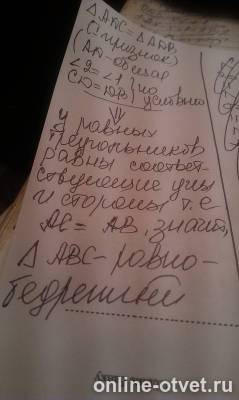 △ADC = △ADB.
(I признак)
(AD - общая
∠2 = ∠1 } по
CD = DB } условию
⇓
У равных
треугольников
равны соответ-
ствующие углы
и стороны, т.е
AC = AB, значит,
△ ABC - равно-
бедренный
online-otvet.ru